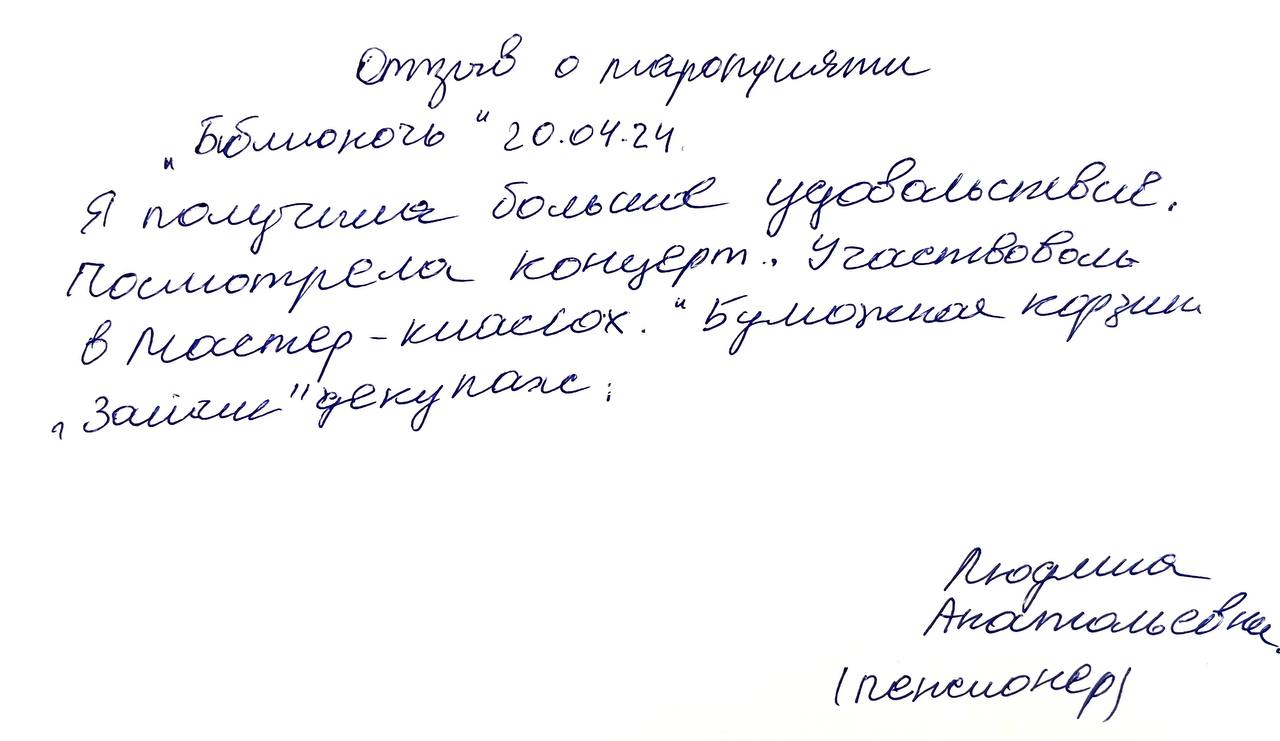 Отзыв о мароприяти
"Библионочь" 20.04.24.
Я получила больше удовольствие.
Посмотрела концерт. Участвовала
в Мастер-классах. "Бумажная корзин
"Зайчик" декупаж.
Людмила
Анатольевна.
(пенсионер)